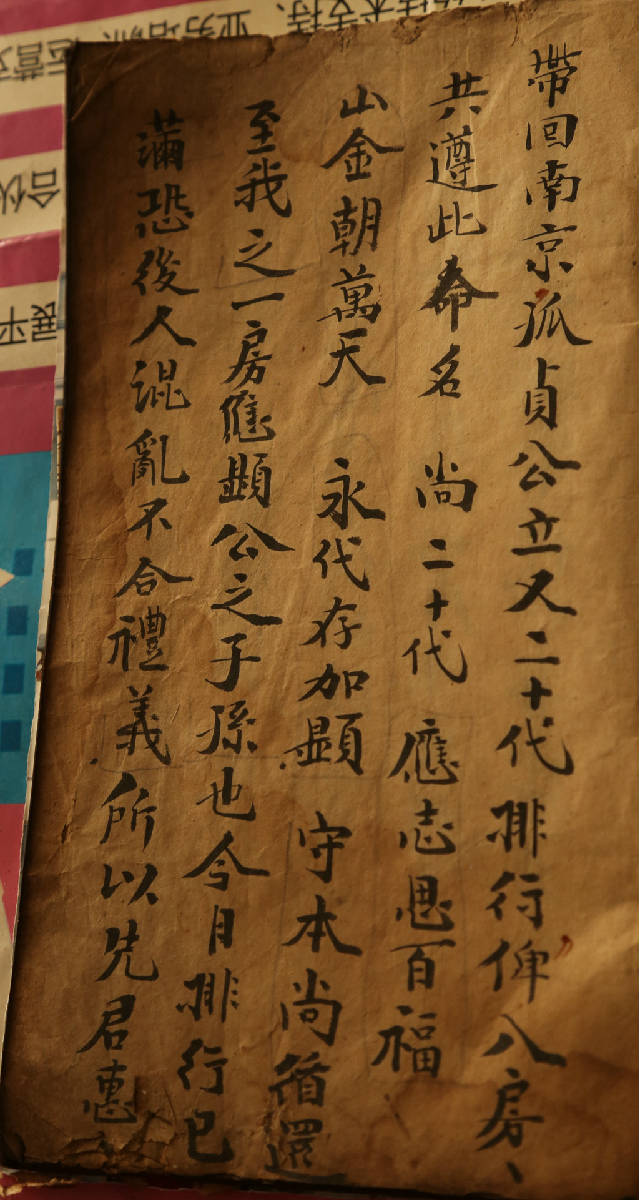 帶回南京孤貞公立又二十代排行俾八房、
共遵此命名 尚二十代 應志思百福
山金朝萬天 永代存加顯 守本尚循還
至我之一房應顯公之子孫也今日排行已
滿恐後人混亂不合禮義所以先君惠
技术支持、业务培训、运营
合伙
展平